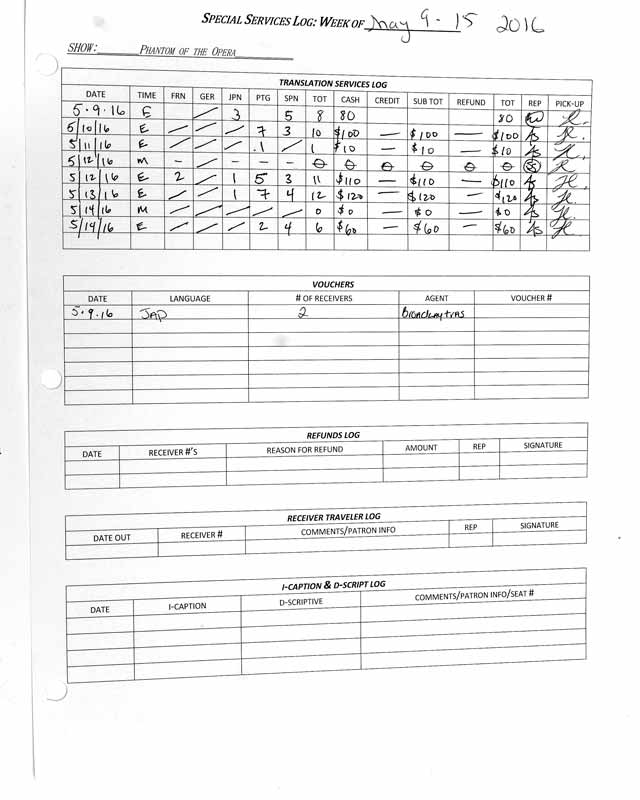 SPECIAL SERVICES LOG: WEEK OF May 9 - 15 2016
SHOW: PHANTOM OF THE OPERA
TRANSLATION SERVICES LOG
DATE TIME FRN GER JPN PTG SPN TOT CASH CREDIT SUB TOT REFUND TOT REP PICK-UP
5.9.16 E / 3 5 8 80 80
5/10/16 E / / / 7 3 10 $100 — $100 — $100 AS
5/11/16 E / / / 1 / 1 $10 — $10 — $10 AS
5/12/16 M - / - - - 0 0 0 0 0 0
5/12/16 E 2 / 1 5 3 11 $110 — $110 — $110 AS
5/13/16 E / / 1 7 4 12 $120 — $120 — $120 AS
5/14/16 M / / / / / 0 $0 — $0 — $0 AS
5/14/16 E / / / 2 4 6 $60 — $60 — $60 AS
VOUCHERS
DATE LANGUAGE # OF RECEIVERS AGENT VOUCHER #
5.9.16 JAP 2
REFUNDS LOG
DATE RECEIVER #'S REASON FOR REFUND AMOUNT REP SIGNATURE
RECEIVER TRAVELER LOG
DATE OUT RECEIVER # COMMENTS/PATRON INFO REP SIGNATURE
I-CAPTION & D-SCRIPT LOG
DATE I-CAPTION D-SCRIPTIVE COMMENTS/PATRON INFO/SEAT #